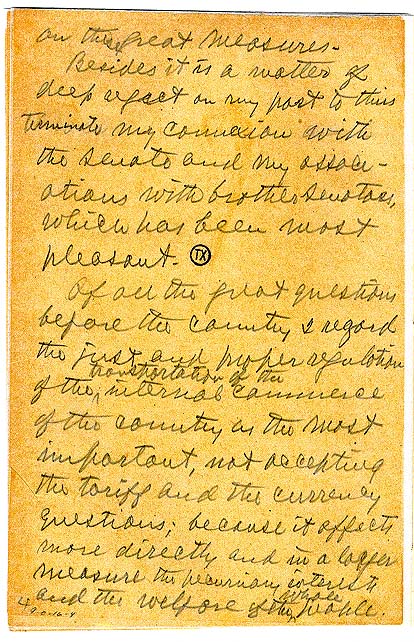 on these great measures.
Besides it is a matter of
deep regret on my part to thus
terminate my connexion with
the Senate and my associ-
ations with brother Senators,
which has been most
pleasant. TX
Of all the great questions
before the country I regard
the just and proper regulation
transportation of the
of the internal commerce
of the country as the most
important, not accepting
the tariff and the currency
questions; because it affects
more directly and in a larger
measure the pecuniary interests
whole
and the welfare of the people.